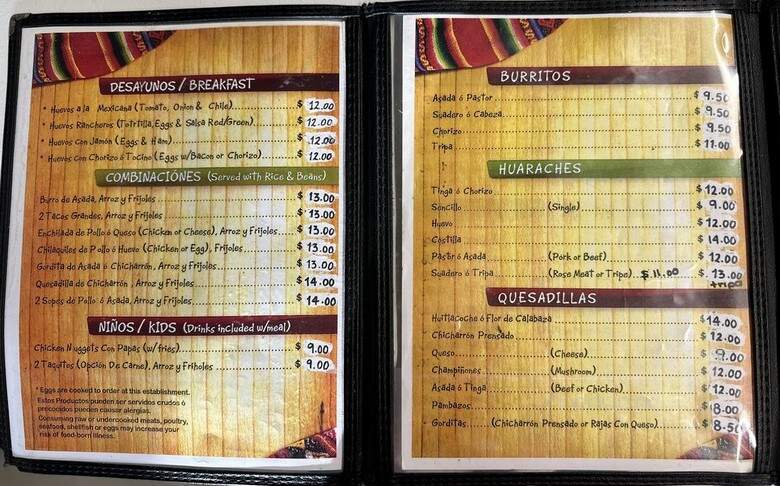 DESAYUNOS / BREAKFAST
* Huevos a la Mexicana (Tomato, Onion & Chile)........$ 12.00
* Huevos Rancheros (Totrtilla, Eggs & Salsa Red/Green)........$ 12.00
* Huevos con Jamón (Eggs & Ham)........$ 12.00
* Huevos Con Chorizo ó Tocino (Eggs w/Bacon or Chorizo)........$ 12.00
COMBINACIÓNES (Served with Rice & Beans)
Burro de Asada, Arroz y Frijoles........$ 13.00
2 Tacos Grandes, Arroz y Frijoles........$ 13.00
Enchilada de Pollo ó Queso (Chicken or Cheese), Arroz y Frijoles........$ 13.00
Chilaquiles de Pollo ó Huevo (Chicken or Egg), Frijoles........$ 13.00
Gordita de Asada ó Chicharrón, Arroz y Frijoles........$ 13.00
Quesadilla de Chicharrón, Arroz y Frijoles........$ 14.00
2 Sopes de Pollo ó Asada, Arroz y Frijoles........$ 14.00
NIÑOS / KIDS (Drinks included w/meal)
Chicken Nuggets Con Papas (w/ fries)........$ 9.00
2 Taquitos (Opción De Carne), Arroz y Friholes........$ 9.00
* Eggs are cooked to order at this establishment.
Estos Productos pueden ser servidos crudos ó
precocidos pueden causar alergias.
Consuming raw or undercooked meats, poultry,
seafood, shellfish or eggs may increase your
risk of food-born illness.
BURRITOS
Asada ó Pastor........$ 9.50
Suadero ó Cabeza........$ 9.50
Chorizo........$ 9.50
Tripa........$ 11.00
HUARACHES
Tinga ó Chorizo........$ 12.00
Sencillo (Single)........$ 9.00
Huevo........$ 12.00
Costilla........$ 14.00
Pastór ó Asada (Pork or Beef)........$ 12.00
Suadero ó Tripa (Rose Meat or Tripe)...$ 11.00 $ 13.00
tripa
QUESADILLAS
Huitlacoche ó Flor de Calabaza........$ 14.00
Chicharrón Prensado........$ 12.00
Queso (Cheese)........$ 9.00
Champiñones (Mushroom)........$ 12.00
Asada ó Tinga (Beef or Chicken)........$ 12.00
Pambazos........$ 18.00
Gorditas (Chicharrón Prensado or Rajas Con Queso)........$ 8.50